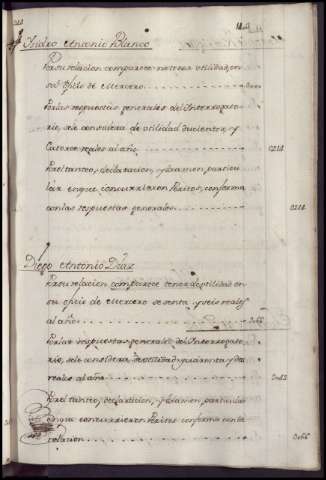 Isidro Antonio Blanco
Por su relacion comparece no tener utilidad en
su oficio de Mercero
Por las respuestas generales del Interrogato-
rio, se le considera de utilidad duzientos, y
Catorce reales al año 0214
Por el tanteo, declaracion, y examen particu-
lar en que concurrieron Peritos, conforma
con las respuestas generales 0214
Diego Antonio Diaz
Por su relacion comparece tener de utilidad en
su oficio de Mercero sesenta y seis reales
al año 0066
Por las respuestas generales del Interrogato-
rio, se le considera de utilidad quarenta y dos
reales al año 0042
Por el tanteo, declaracion, y examen particular
en que concurrieron Peritos conforma con la
relacion 0066